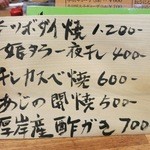 ツボダイ焼 1.200-
姫タラ一夜干 400-
干しカスベ焼 600-
あじの開焼 500-
厚岸産酢がき 700